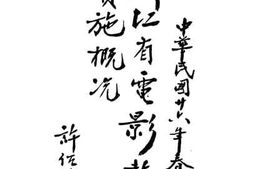 中華民國廿六年春
江有電影教
施概況
許